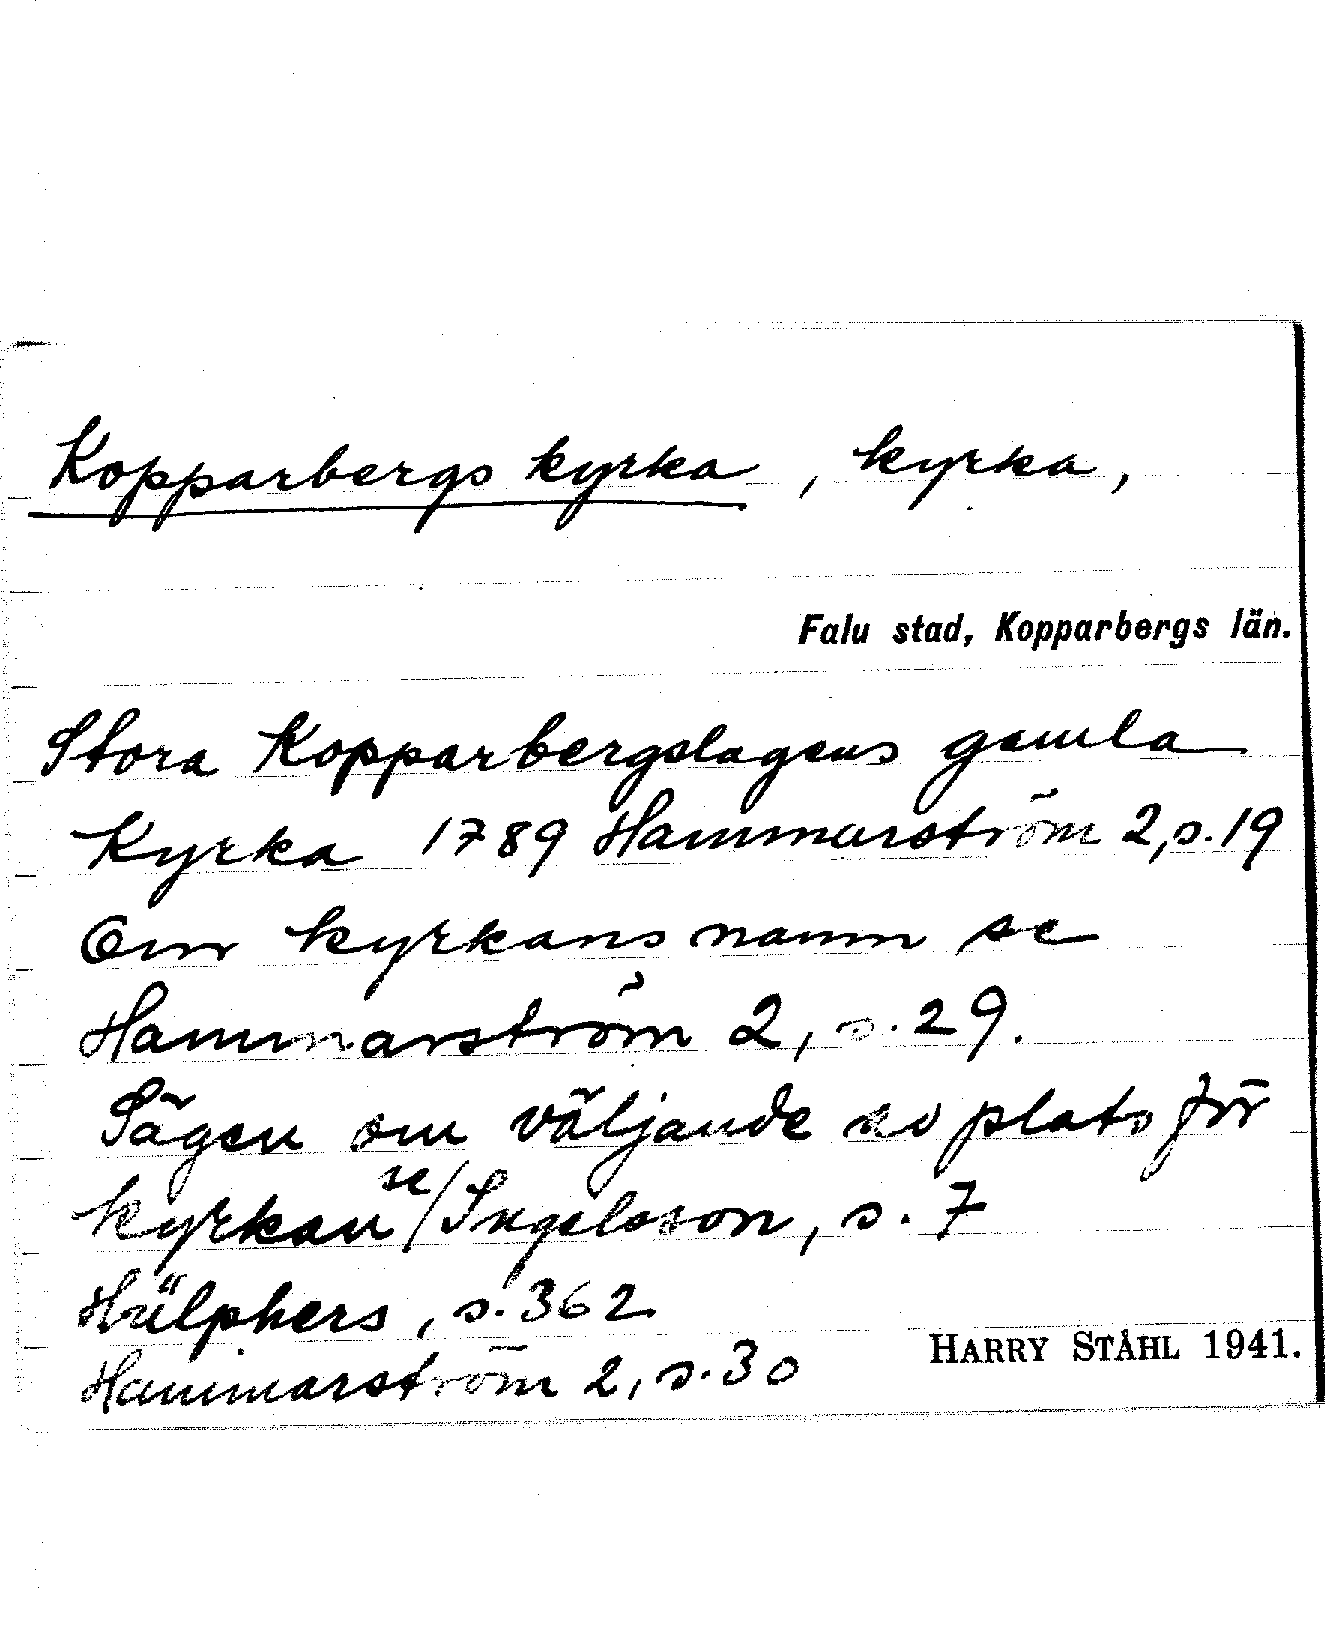 Kopparbergs kyrka, kyrka,
Falu stad, Kopparbergs län.
Stora Kopparbergslagens gamla
Kyrka 1789 Hammarström 2, s. 19
Om kyrkans namn se
Hammarström 2, s. 29.
Sägen om väljande av plats för
kyrkan se/Ingelsson, s. 7
Hülphers, s. 362
Hammarström 2, s. 30
HARRY STÅHL 1941.